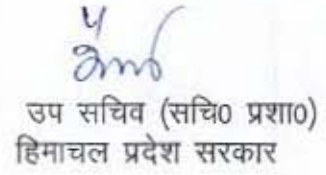 उप सचिव (सचि0 प्रशा0)
हिमाचल प्रदेश सरकार